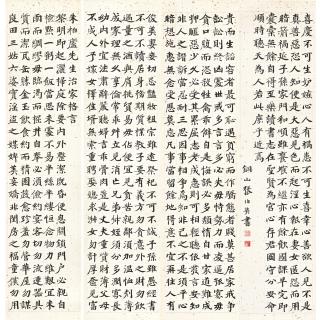 朱柏廬先生治家格言
黎明即起灑掃庭除要內外整潔既昏便息關鎖門戶必親自
檢點一粥一飯當思來處不易半絲半縷恆念物力維艱宜未
雨而綢繆毋臨渴而掘井自奉必須儉約宴客切勿流連器具
質而潔瓦缶勝金玉飲食約而精園蔬愈珍饈勿營華屋勿謀
良田三姑六婆實淫盜之媒婢美妾嬌非閨房之福童僕勿用
俊美妻妾切忌豔妝祖宗雖遠祭祀不可不誠子孫雖愚經書
不可不讀居身務期質樸教子要有義方勿貪意外之財勿飲
過量之酒與肩挑貿易毋占便宜見貧苦親鄰須加溫恤刻薄
成家理無久享倫常乖舛立見消亡兄弟叔姪須分多潤寡長
幼內外宜法肅辭嚴聽婦言乖骨肉豈是丈夫重貲財薄父母
不成人子嫁女擇佳婿毋索重聘娶媳求淑女勿計厚奩見富
貴而生諂容者最可恥遇貧窮而作驕態者賤莫甚居家戒爭
訟訟則終凶處世戒多言言多必失毋恃勢力而凌逼孤寡勿
貪口腹而恣殺牲禽乖僻自是悔誤必多頹惰自甘家道難成
狎暱惡少久必受其累屈志老成急則可相依輕聽發言安知
非人之譖愬當忍耐三思因事相爭安知非我之不是須平心
暗想施惠無念受恩莫忘凡事當留餘地得意不宜再往人有
喜慶不可生妒忌心人有禍患不可生喜幸心善欲人見不是
真善惡恐人知便是大惡見色而起淫心報在妻女匿怨而用
暗箭禍延子孫家門和順雖饔飧不繼亦有餘歡國課早完即
囊橐無餘自得至樂讀書志在聖賢為官心存君國守分安命
順時聽天為人若此庶乎近焉
銅山張伯英書